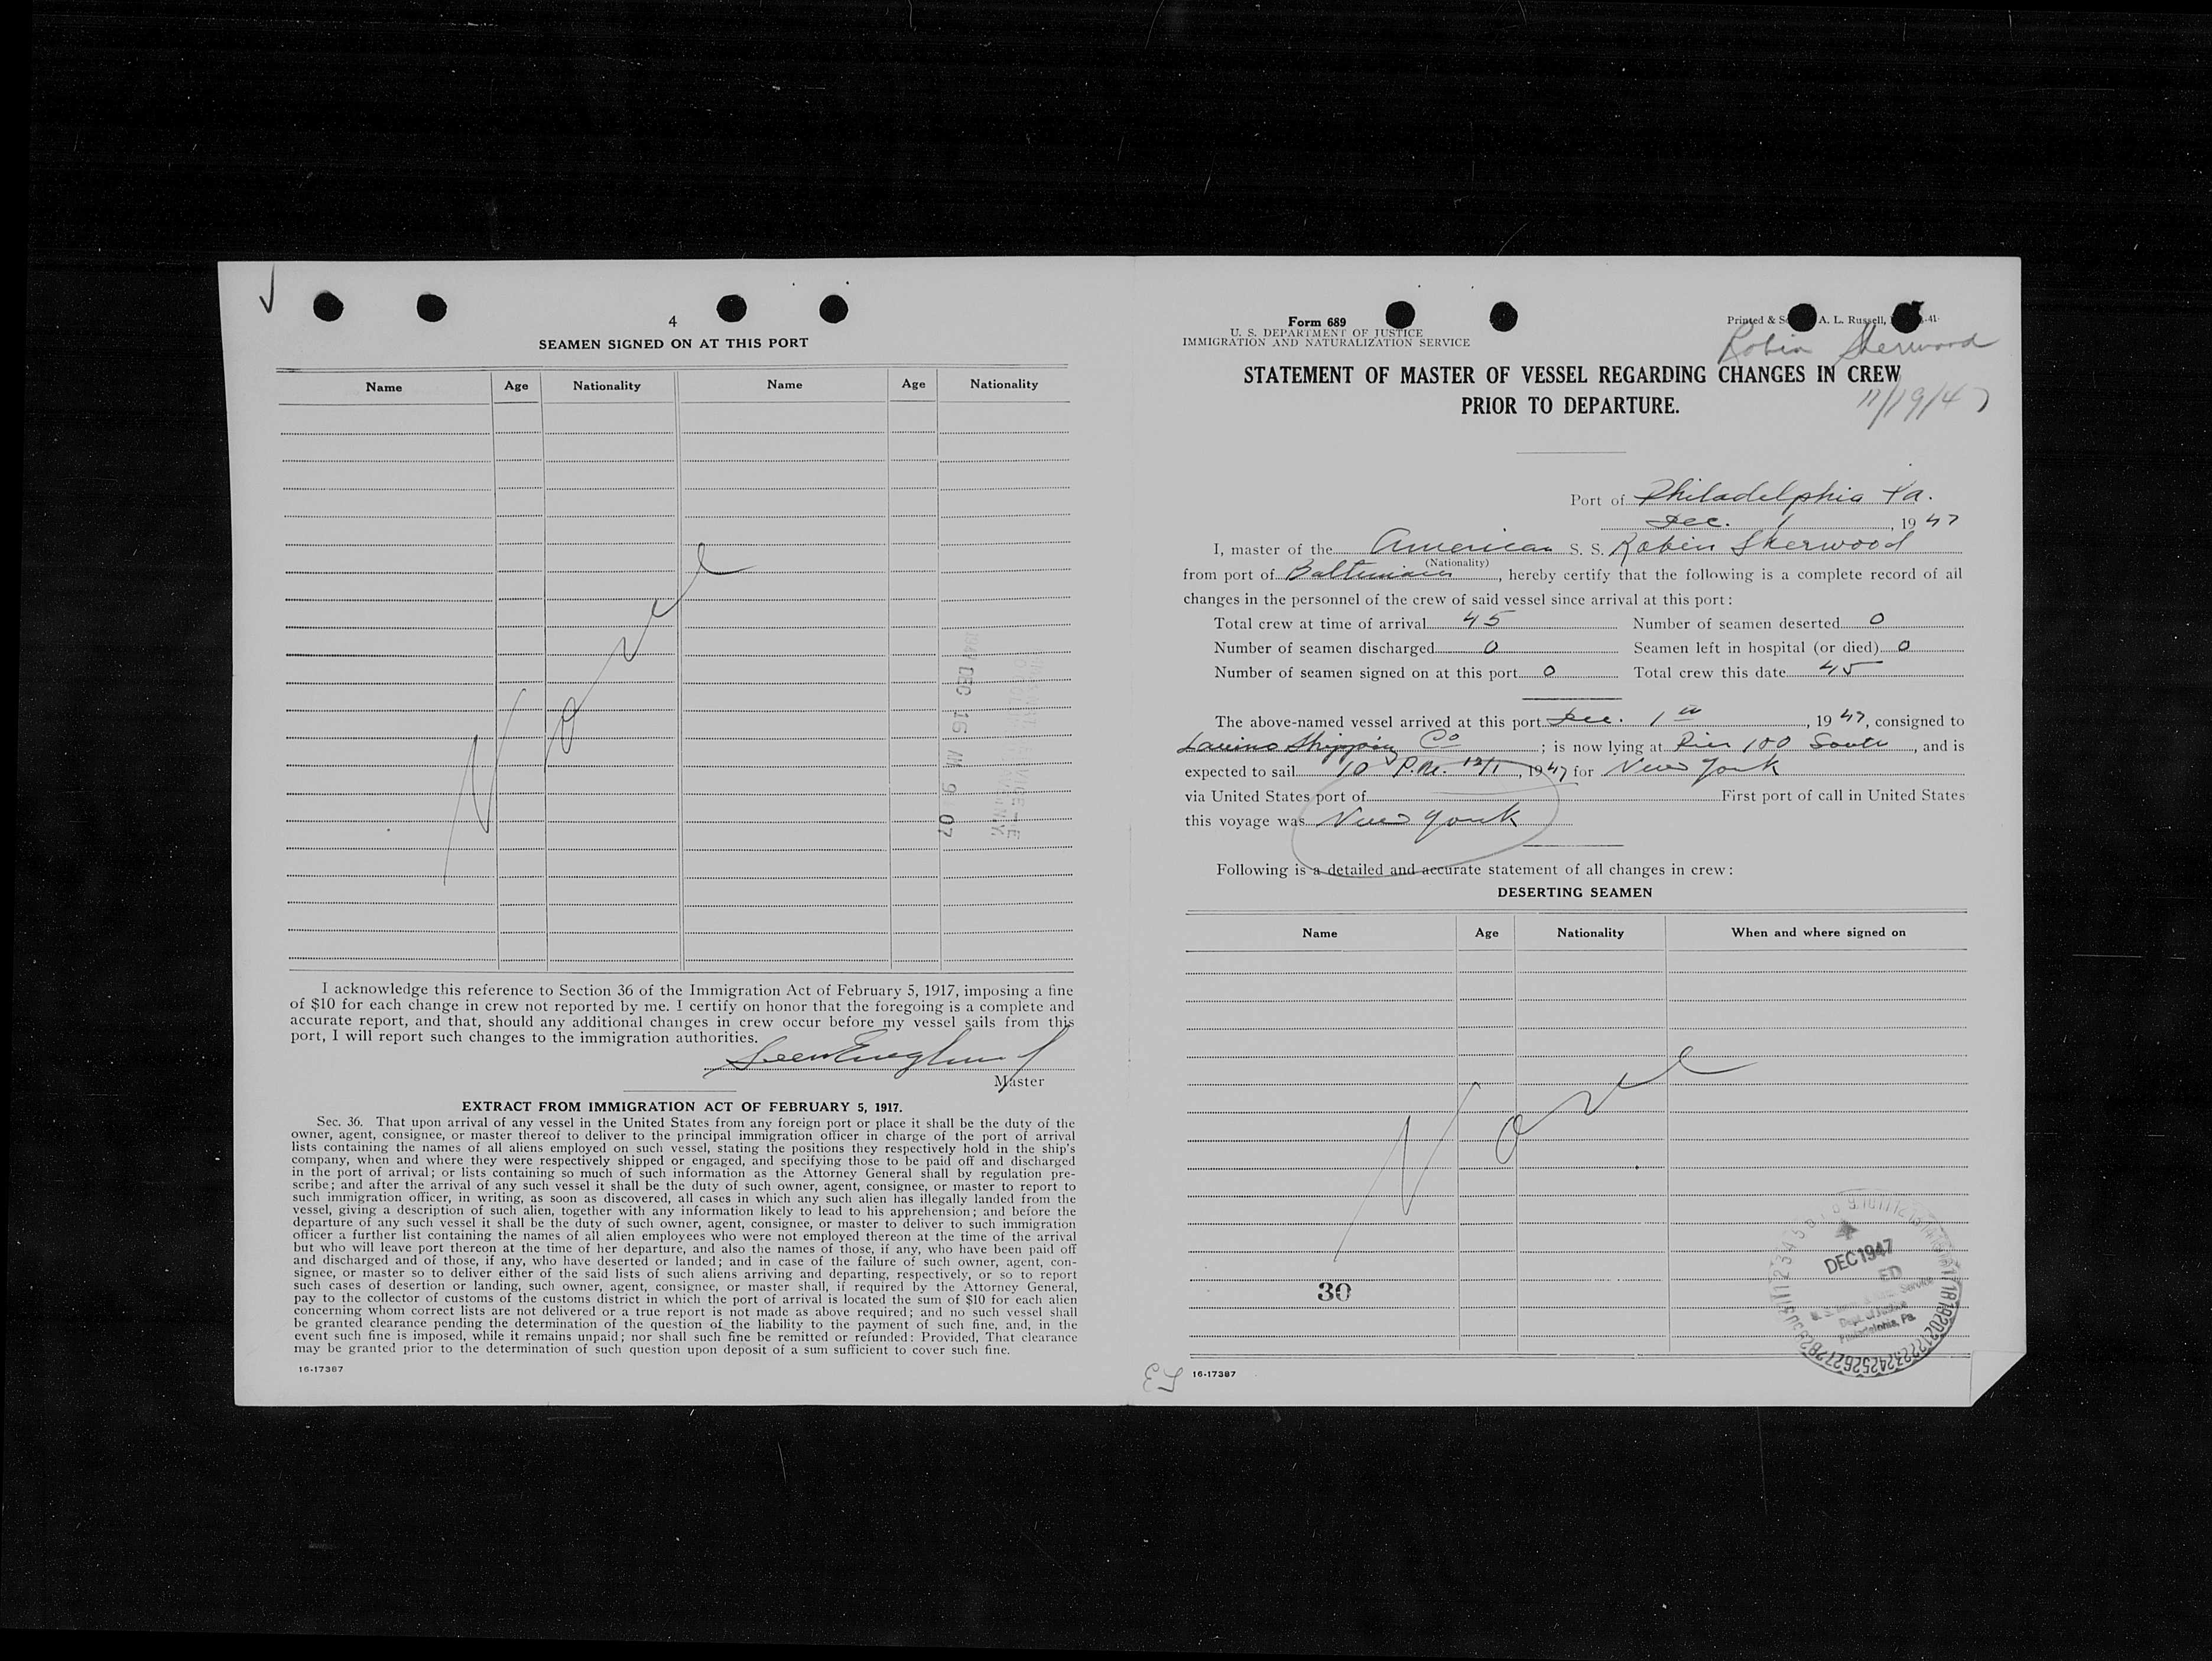 4
SEAMEN SIGNED ON AT THIS PORT
Name Age Nationality Name Age Nationality
None
1947 DEC 16 AM 9 07
I acknowledge this reference to Section 36 of the Immigration Act of February 5, 1917, imposing a fine
of $10 for each change in crew not reported by me. I certify on honor that the foregoing is a complete and
accurate report, and that, should any additional changes in crew occur before my vessel sails from this
port, I will report such changes to the immigration authorities.
Master
EXTRACT FROM IMMIGRATION ACT OF FEBRUARY 5, 1917.
Sec. 36. That upon arrival of any vessel in the United States from any foreign port or place it shall be the duty of the
owner, agent, consignee, or master thereof to deliver to the principal immigration officer in charge of the port of arrival
lists containing the names of all aliens employed on such vessel, stating the positions they respectively hold in the ship's
company, when and where they were respectively shipped or engaged, and specifying those to be paid off and discharged
in the port of arrival; or lists containing so much of such information as the Attorney General shall by regulation pre-
scribe; and after the arrival of any such vessel it shall be the duty of such owner, agent, consignee, or master to report to
such immigration officer, in writing, as soon as discovered, all cases in which any such alien has illegally landed from the
vessel, giving a description of such alien, together with any information likely to lead to his apprehension; and before the
departure of any such vessel it shall be the duty of such owner, agent, consignee, or master to deliver to such immigration
officer a further list containing the names of all alien employees who were not employed thereon at the time of the arrival
but who will leave port thereon at the time of her departure, and also the names of those, if any, who have been paid off
and discharged and of those, if any, who have deserted or landed; and in case of the failure of such owner, agent, con-
signee, or master so to deliver either of the said lists of such aliens arriving and departing, respectively, or so to report
such cases of desertion or landing, such owner, agent, consignee, or master shall, if required by the Attorney General,
pay to the collector of customs of the customs district in which the port of arrival is located the sum of $10 for each alien
concerning whom correct lists are not delivered or a true report is not made as above required; and no such vessel shall
be granted clearance pending the determination of the question of the liability to the payment of such fine, and, in the
event such fine is imposed, while it remains unpaid; nor shall such fine be remitted or refunded: Provided, That clearance
may be granted prior to the determination of such question upon deposit of a sum sufficient to cover such fine.
16-17387
Form 689
U. S. DEPARTMENT OF JUSTICE
IMMIGRATION AND NATURALIZATION SERVICE
Printed & A. L. Russell,
Robin Sherwood
11/19/47
STATEMENT OF MASTER OF VESSEL REGARDING CHANGES IN CREW
PRIOR TO DEPARTURE.
Port of Philadelphia Pa.
Dec. 1, 1947
I, master of the American S. S. Robin Sherwood
(Nationality)
from port of Baltimore, hereby certify that the following is a complete record of all
changes in the personnel of the crew of said vessel since arrival at this port:
Total crew at time of arrival 45 Number of seamen deserted 0
Number of seamen discharged 0 Seamen left in hospital (or died) 0
Number of seamen signed on at this port 0 Total crew this date 45
The above-named vessel arrived at this port Dec. 1st, 1947, consigned to
Lavino Shipping Co; is now lying at Pier 100 South, and is
expected to sail 10 P.M. 12/1, 1947 for New York
via United States port of First port of call in United States
this voyage was New York
Following is a detailed and accurate statement of all changes in crew:
DESERTING SEAMEN
Name Age Nationality When and where signed on
None
30
DEC 1947
Dept. of Justice
Philadelphia, Pa.
16-17387